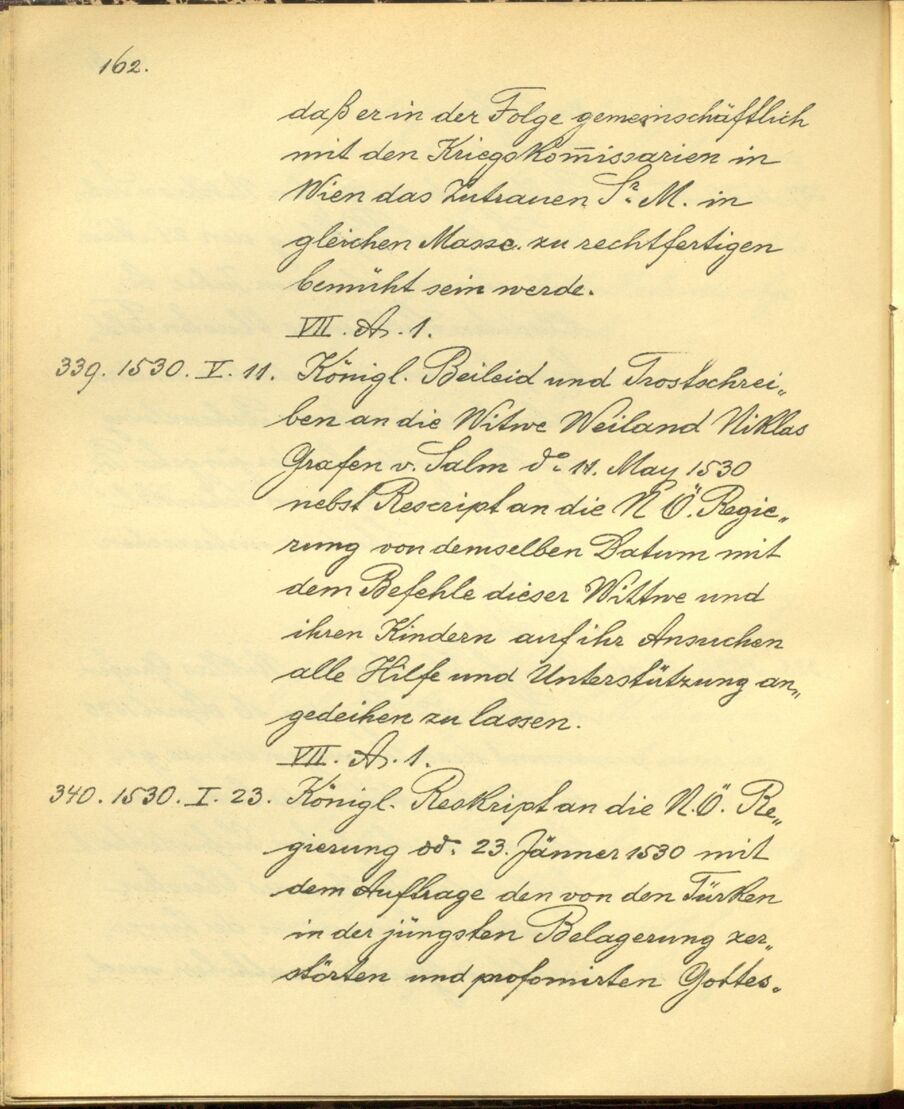 162.
daß er in der Folge gemeinschäftlich
mit den Kriegskom̅issarien in
Wien das Zutrauen Sr. M. in
gleichen Masse zu rechtfertigen
bemüht sein werde.
VII. A. 1.
339. 1530. V. 11. Königl. Beileid und Trostschrei„
ben an die Witwe Weiland Niklas
Grafen v. Salm do. 11. May 1530
nebst Rescript an die N. Ö. Regie„
rung von demselben Datum mit
dem Befehle dieser Wittwe und
ihren Kindern auf ihr Ansuchen
alle Hilfe und Unterstützung an„
gedeihen zu lassen.
VII. A. 1.
340. 1530. I. 23. Königl. Reskript an die N. Ö. Re„
gierung dd. 23. Jänner 1530 mit
dem Auftrage den von den Türken
in der jüngsten Belagerung zer„
störten und profomirten Gottes„